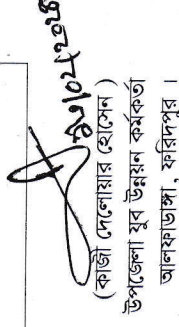 (কাজী দেলোয়ার হোসেন)
উপজেলা যুব উন্নয়ন কর্মকর্তা
আলফাডাঙ্গা, ফরিদপুর।